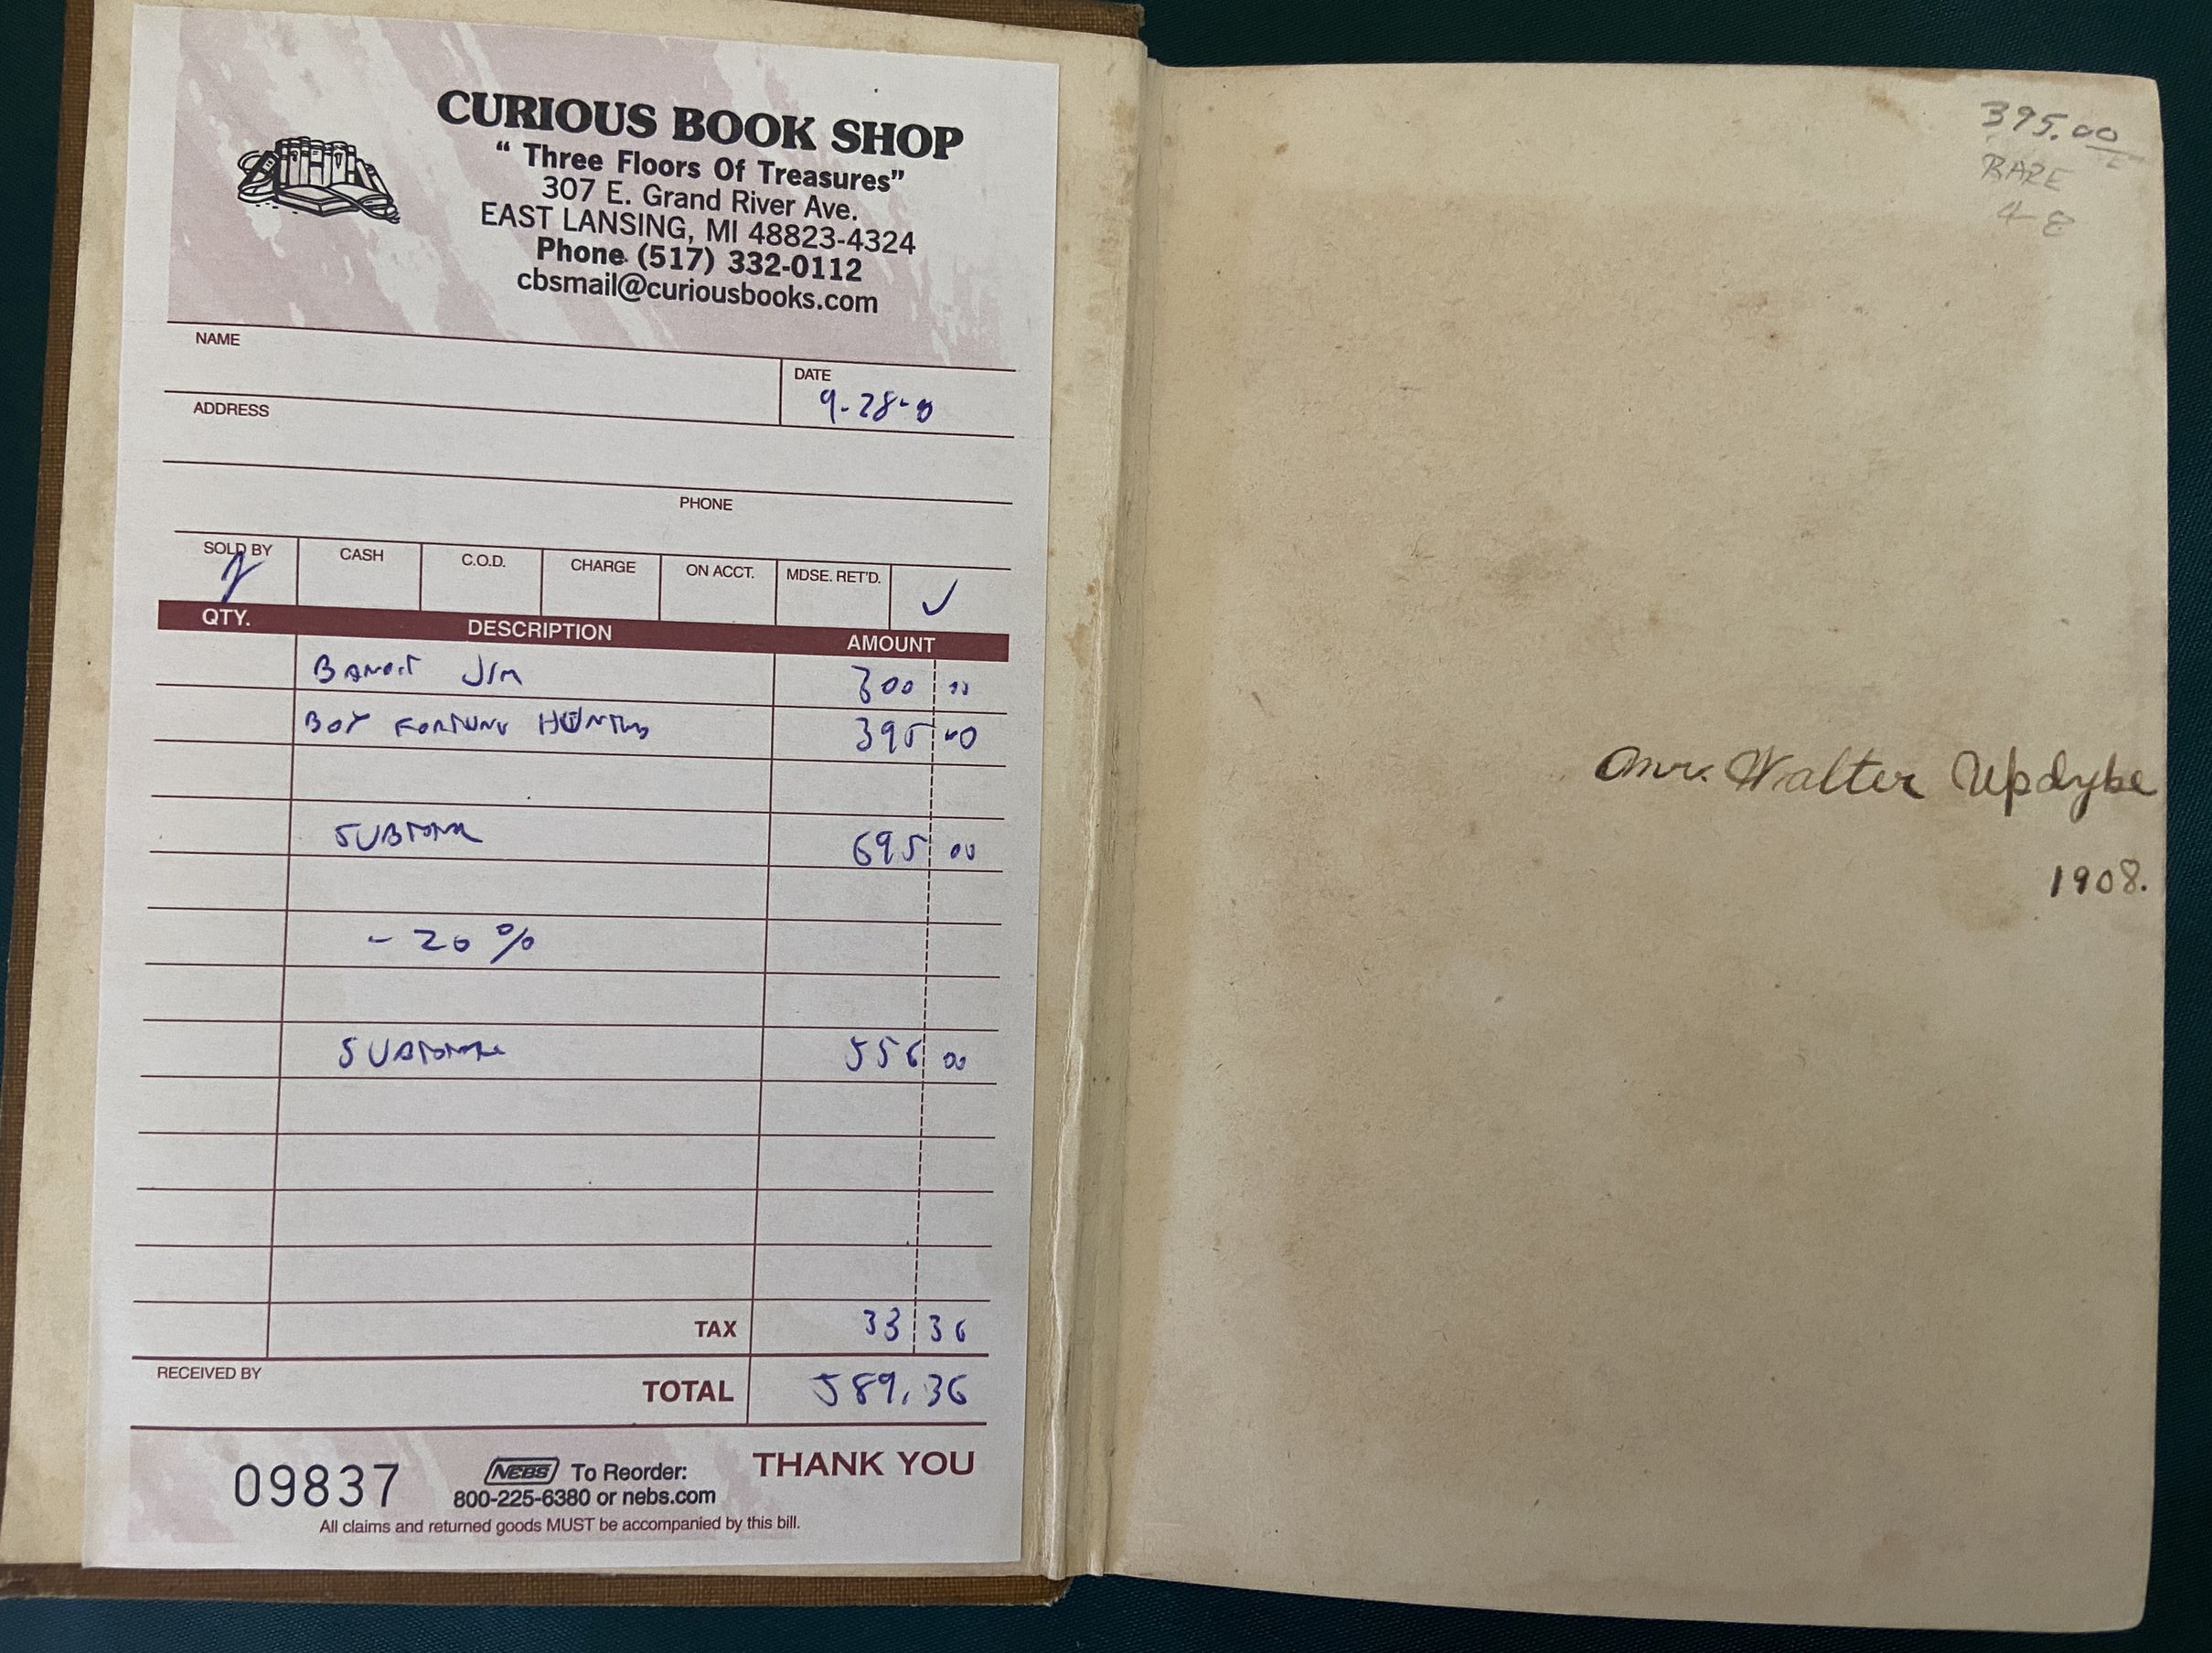 CURIOUS BOOK SHOP
“ Three Floors Of Treasures”
307 E. Grand River Ave.
EAST LANSING, MI 48823-4324
Phone (517) 332-0112
cbsmail@curiousbooks.com
NAME
DATE
9-28-0
ADDRESS
PHONE
SOLD BY CASH C.O.D. CHARGE ON ACCT. MDSE. RET'D.
QTY. DESCRIPTION AMOUNT
BANDIT JIM 300 00
BOY FORTUNE HUNTERS 395 00
SUBTOTAL 695 00
- 20 %
SUBTOTAL 556 00
TAX 33 36
RECEIVED BY
TOTAL 589.36
09837
NEBS To Reorder:
800-225-6380 or nebs.com
THANK YOU
All claims and returned goods MUST be accompanied by this bill.
395.00
RARE
4-8
Mr. Walter Updyke
1908.